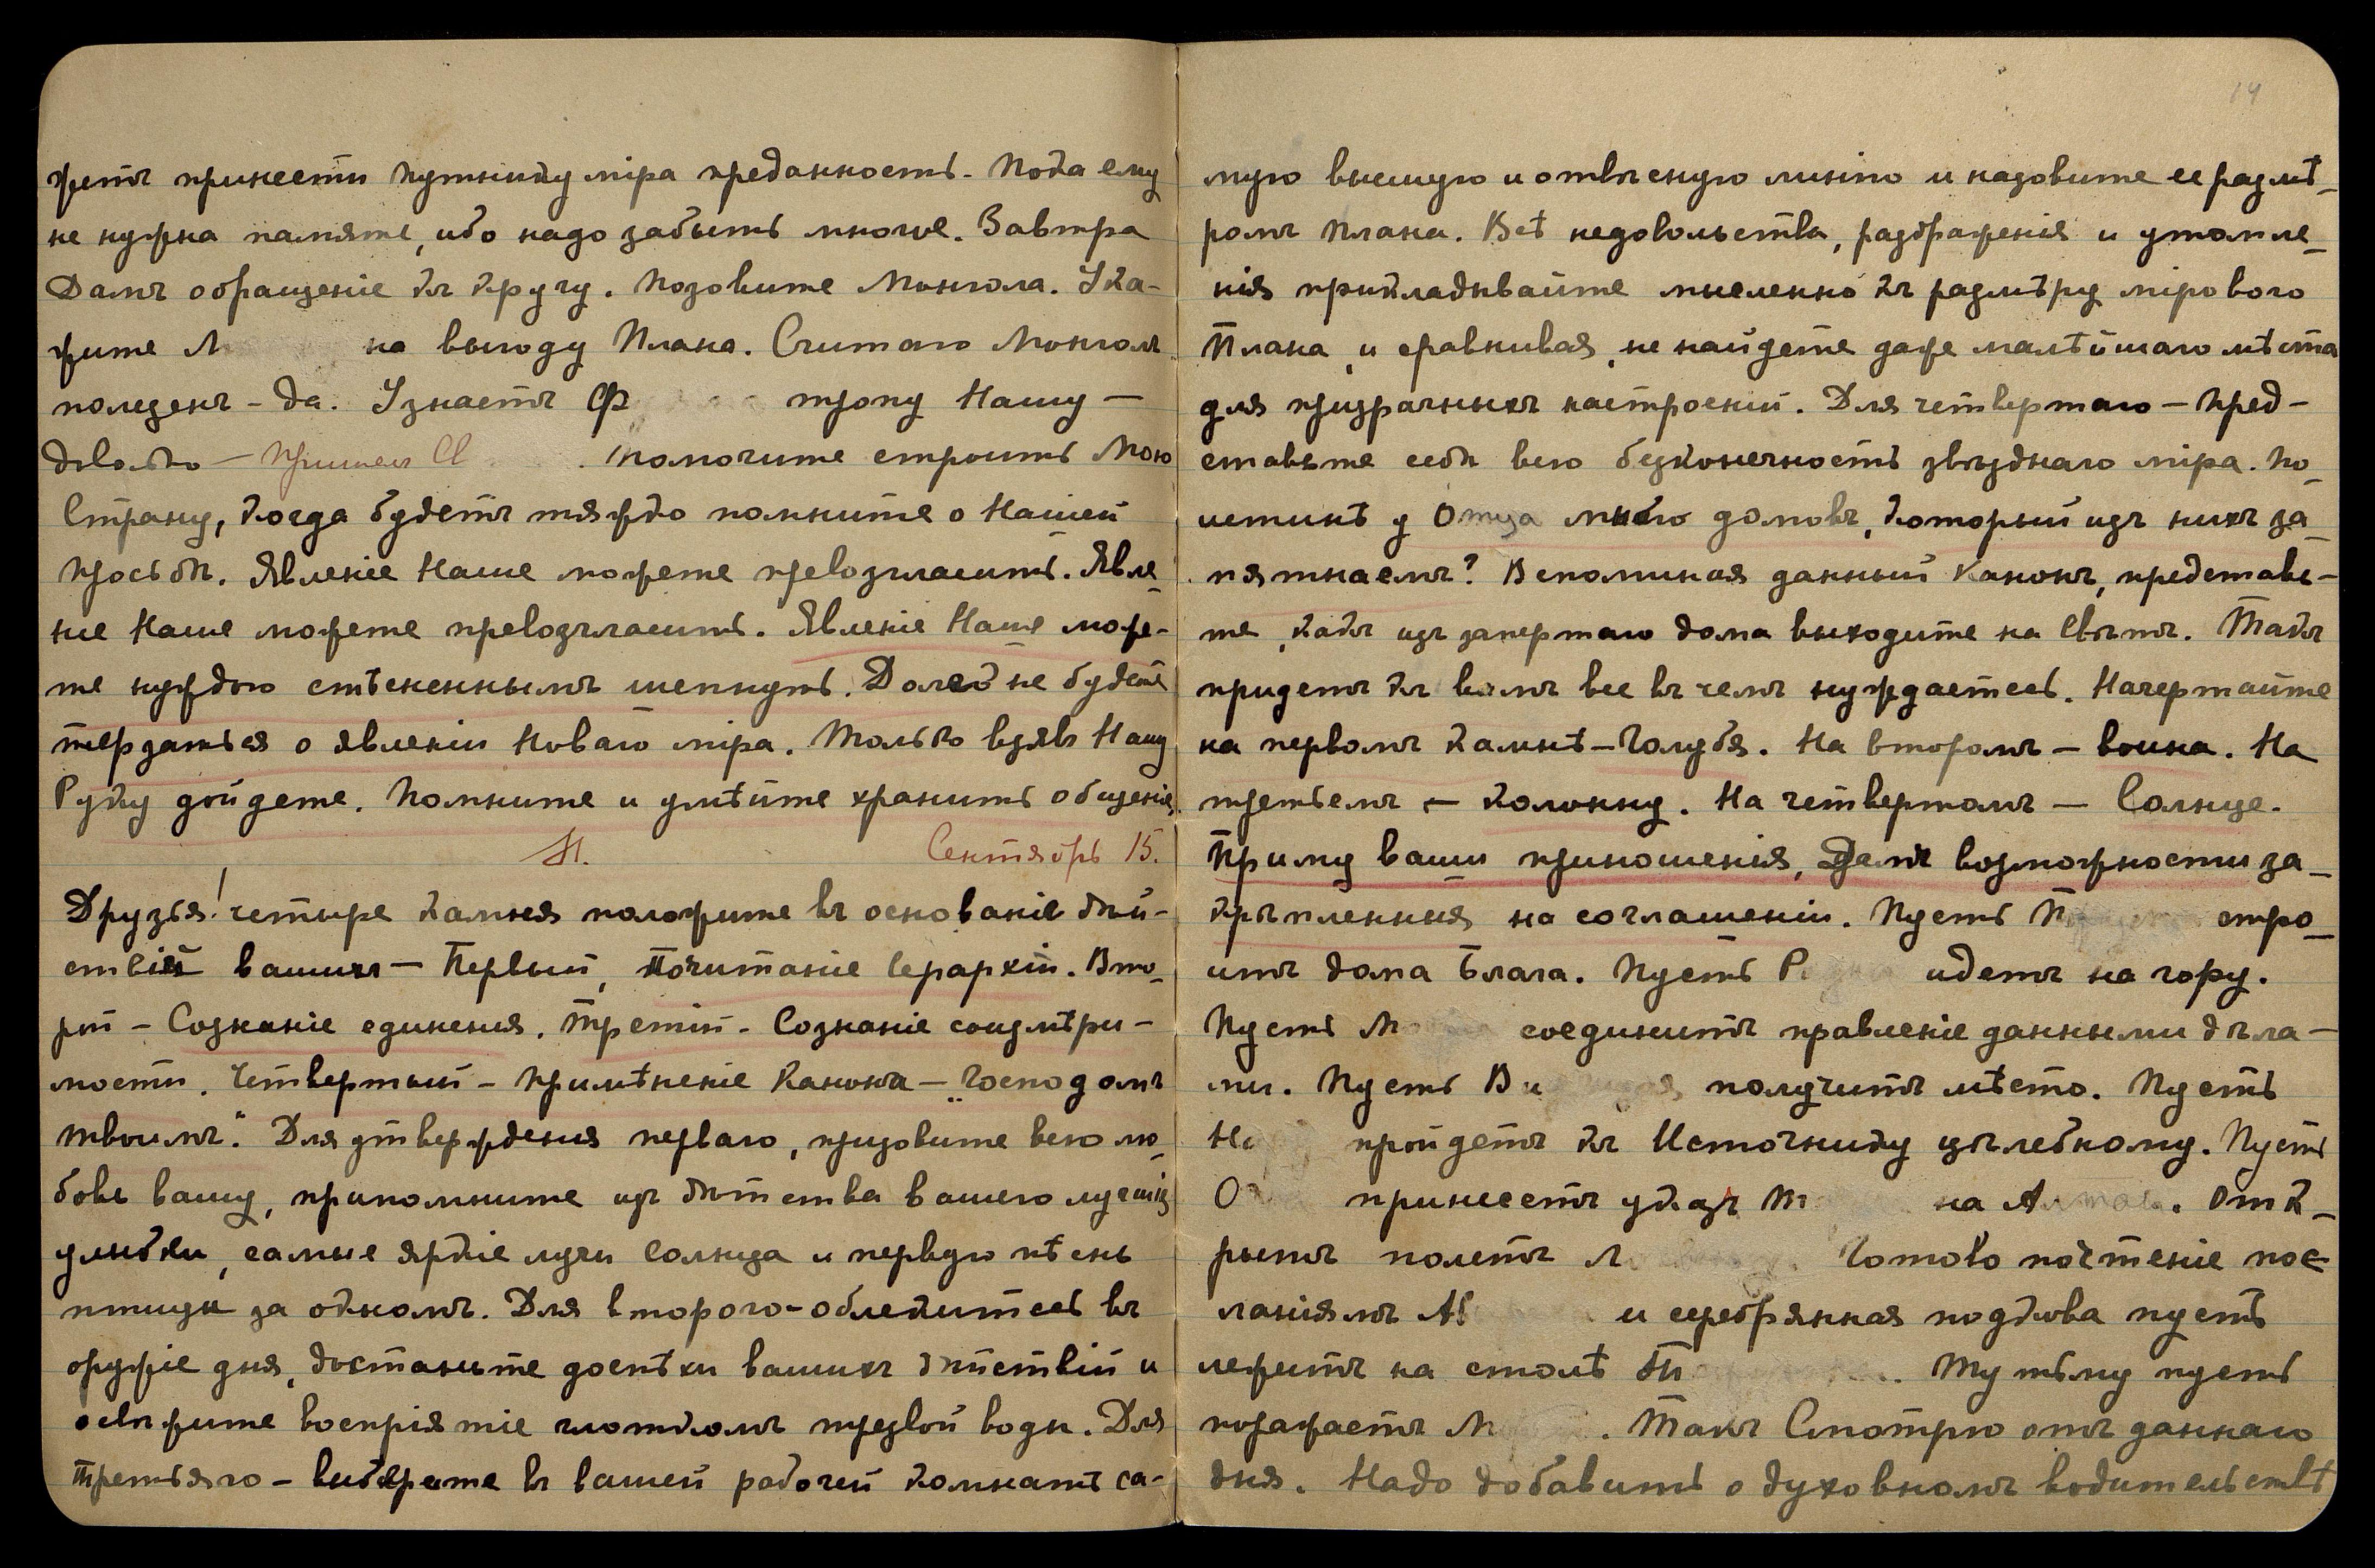 жетъ принести путнику міра преданность. Пока ему
не нужна память, ибо надо забыть многое. Завтра
Дамъ обращеніе къ кругу. Позовите Монгола. Ука-
жите на выгоду Плана. Считаю Монголъ
полезенъ - да. Узнаетъ тропу Нашу —
довольно — Помогите строить Мою
Страну, когда будетъ тяжко помните о Нашей
просьбѣ. Явленіе Наше можете превозгласить. Явле-
ніе Наше можете превозгласить. Явленіе Наше може-
те нуждою стѣсненнымъ шепнуть. Долго не будете
терзаться о явленіи Новаго міра. Только взявъ Нашу
Руку дойдете. Помните и умѣйте хранить общеніе.
М. Сентябрь 15.
Друзья! четыре камня положите въ основаніе дѣй-
ствій вашихъ — Первый, Почитаніе Іерархіи. Вто-
рой - Сознаніе единенія. Третій - Сознаніе соизмѣри-
мости. Четвертый - примѣненіе Канона — „Господомъ
твоимъ". Для утвержденія перваго, призовите всю лю-
бовь вашу, припомните изъ дѣтства вашего лучшія
улыбки, самые яркіе лучи солнца и первую пѣснь
птицы за окномъ. Для второго - облекитесь въ
оружіе дня, достаньте доспѣхи вашихъ дѣйствій и
освѣжите воспріятіе глоткомъ трезвой воды. Для
третьяго - выберете въ вашей рабочей комнатѣ са-
14
мую высшую и отвѣсную линію и назовите ее размѣ-
ромъ Плана. Всѣ недовольства, раздраженія и утомле-
нія прикладывайте мысленно къ размѣру мірового
Плана, и сравнивая, не найдете даже малѣйшаго мѣста
для призрачныхъ настроеній. Для четвертаго — пред-
ставьте себѣ всю безконечность звѣзднаго міра. По-
истинѣ у Отца много домовъ, который изъ нихъ за-
пятнаемъ? Вспоминая данный Канонъ, представь-
те, какъ изъ запертаго дома выходите на Свѣтъ. Такъ
придетъ къ вамъ все въ чемъ нуждаетесь. Начертайте
на первомъ камнѣ — Голубя. На второмъ — воина. На
третьемъ — колонну. На четвертомъ — Солнце.
Приму ваши приношенія, Дамъ возможности за-
крѣпленныя на соглашеніи. Пусть стро-
итъ дома Блага. Пусть идетъ на гору.
Пусть соединитъ правленіе данными дѣла-
ми. Пусть получитъ мѣсто. Пусть
пройдетъ къ Источнику цѣлебному. Пусть
принесетъ указъ на . Отк-
рытъ полетъ Готово почтеніе пос-
ланіямъ и серебрянная подкова пусть
лежитъ на столѣ . Ту тьму пусть
поражаетъ . Такъ Смотрю отъ даннаго
дня. Надо добавить о духовномъ водительствѣ